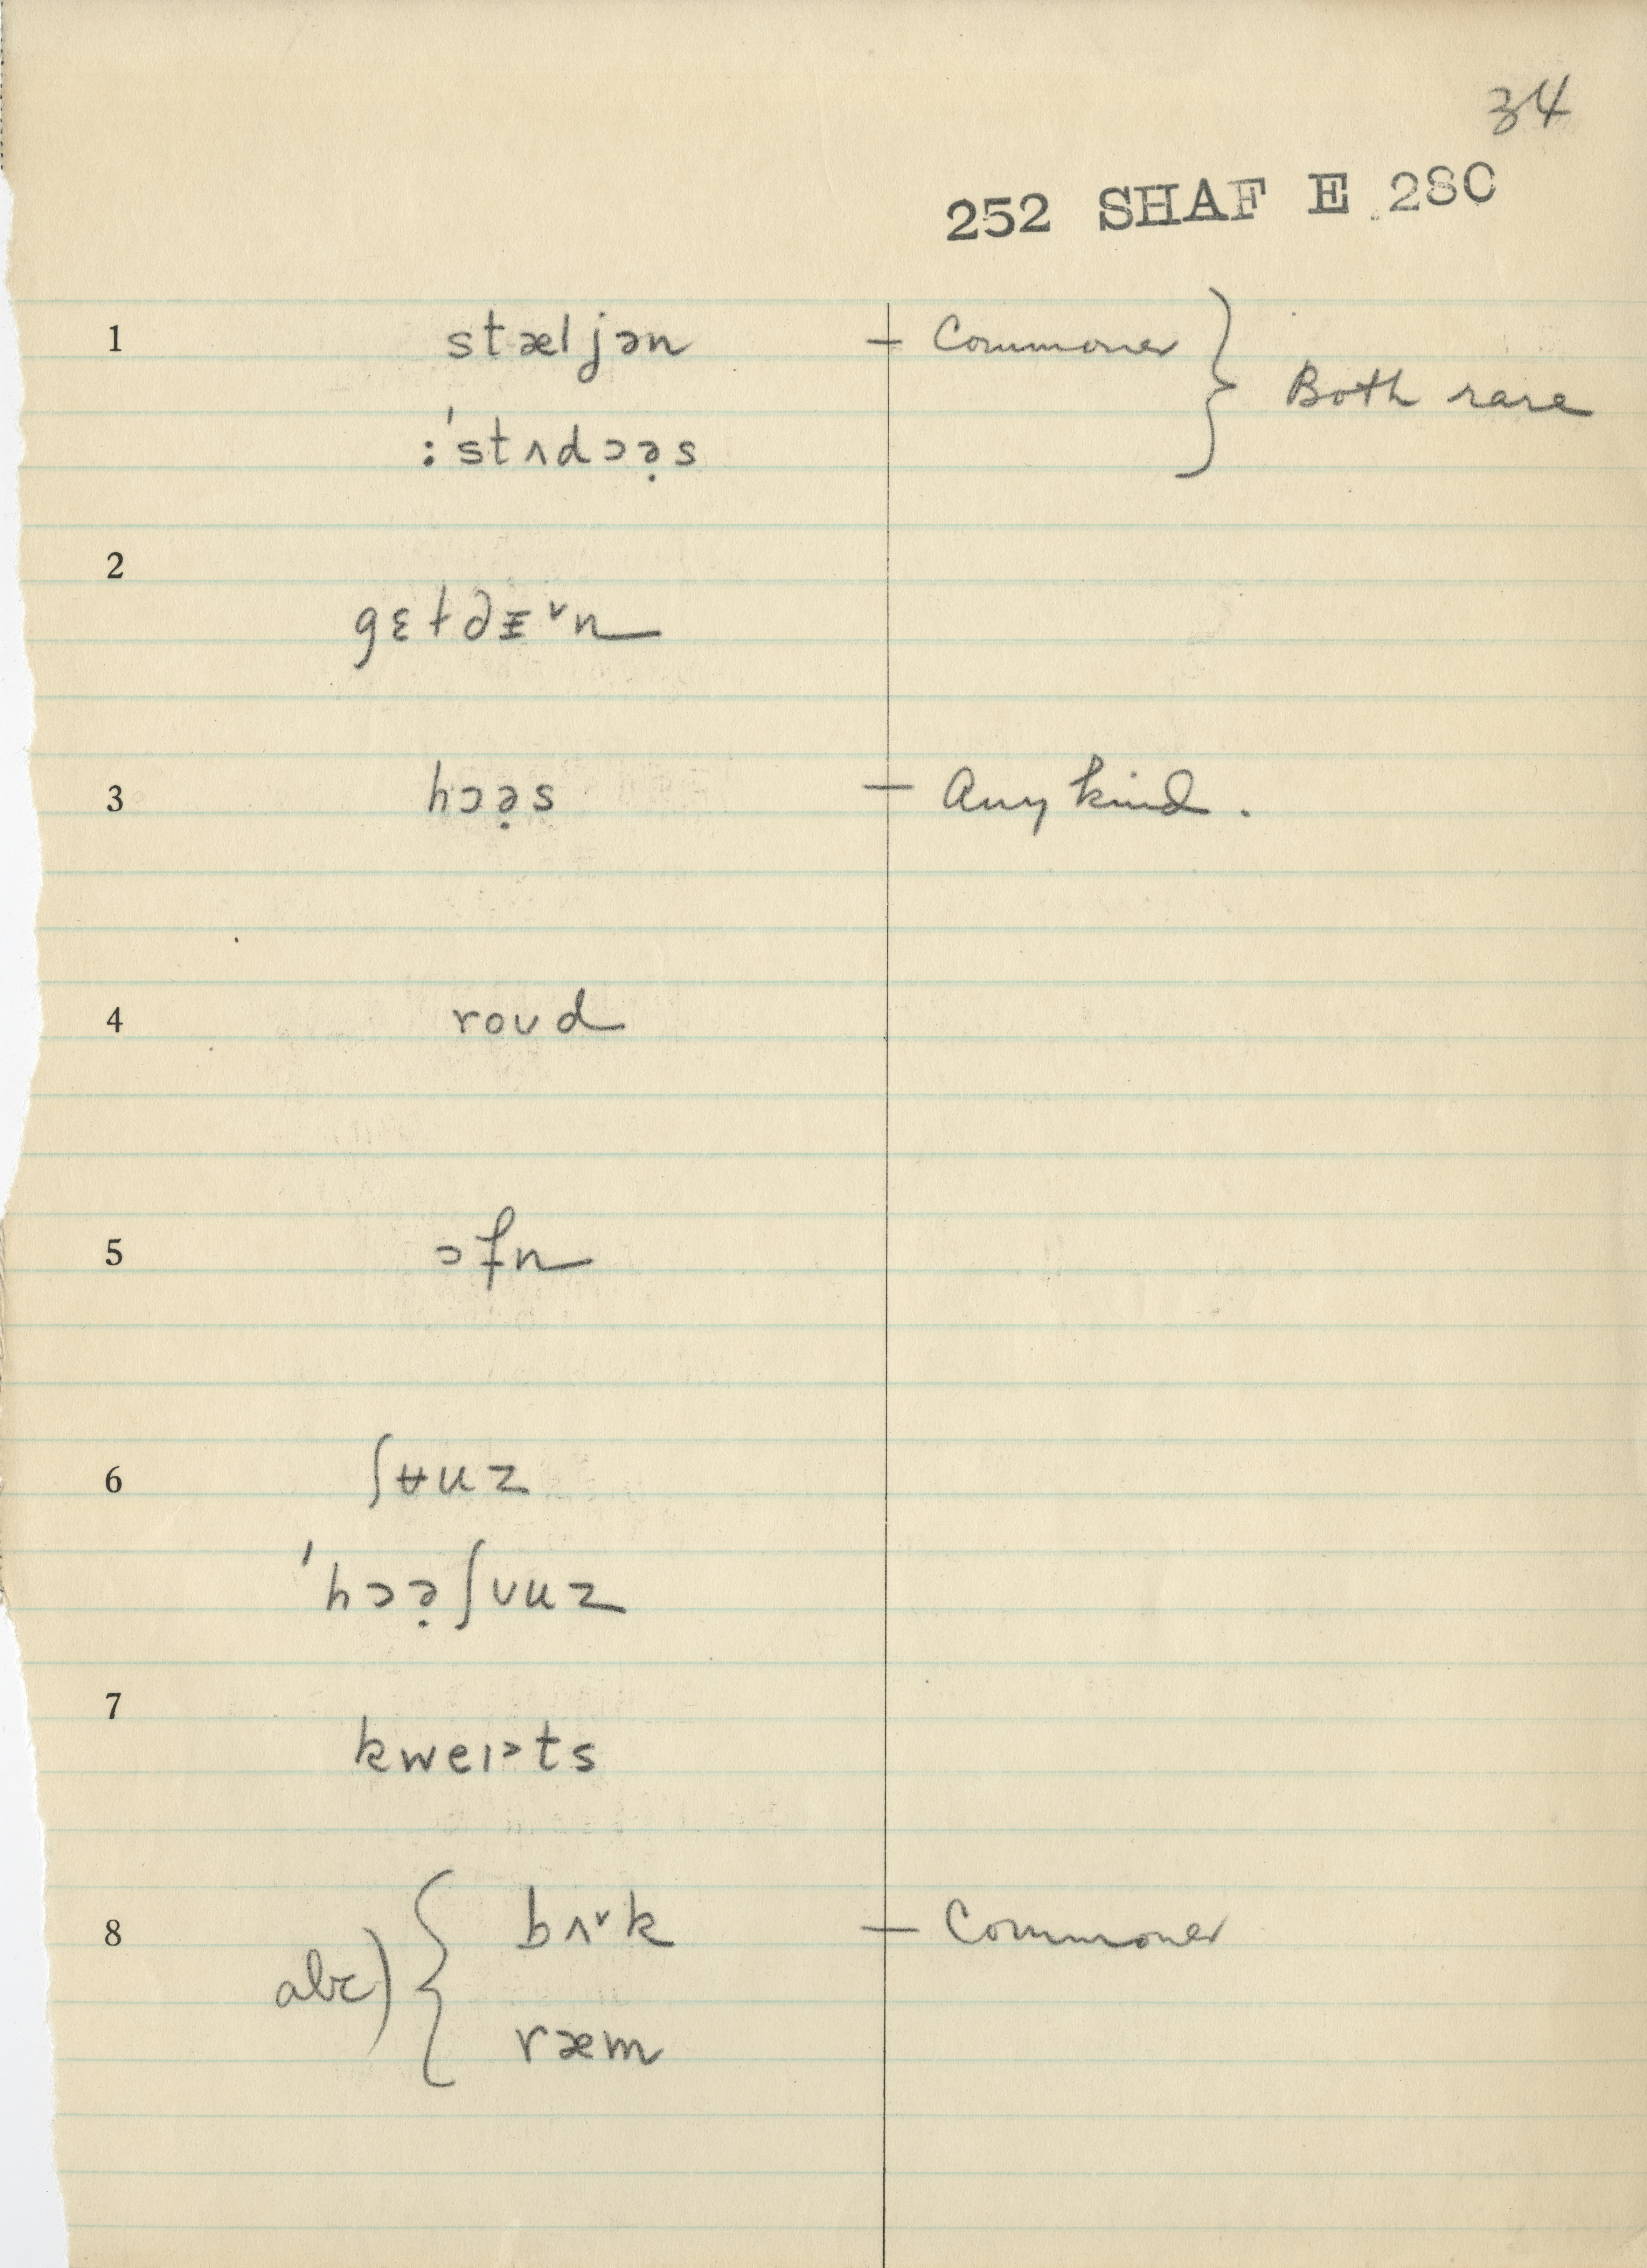 34
252 SHAF E 280
1 stæljən — Commoner } Both rare
:ˈstʌdɔə̣s
2
gɛt∂ᵻ˅n
3 hɔə̣s — Any kind.
4 roʊd
5 ɔfn
6 ʃʉuz
ˈhɔə̣ʃʊuz
7
kweɪ˃ts
8 abc) { bʌ˅k — Commoner
ræm